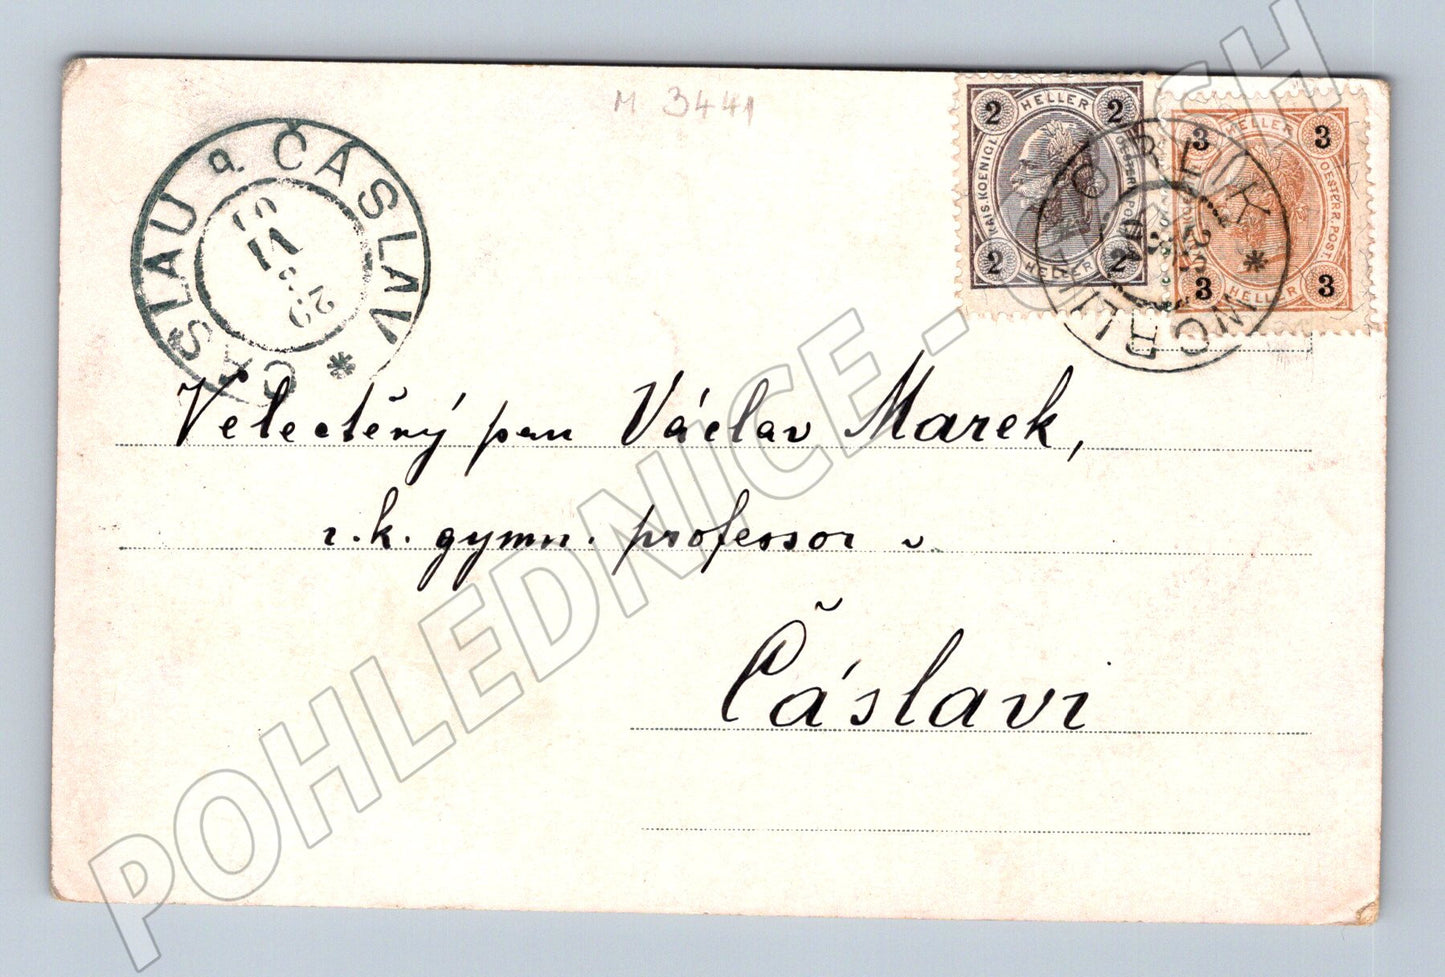 M 3441
ČÁSLAV * ČASLAU a.
29 VI 01
2 HELLER 2
KAIS. KOENIGL. OESTERR. POST
2 HELLER 2
3 HELLER 3
OESTERR. POST
3 HELLER 3
Velectěný pan Václav Marek,
c. k. gymn. professor v
Čáslavi
POHLEDNICE -